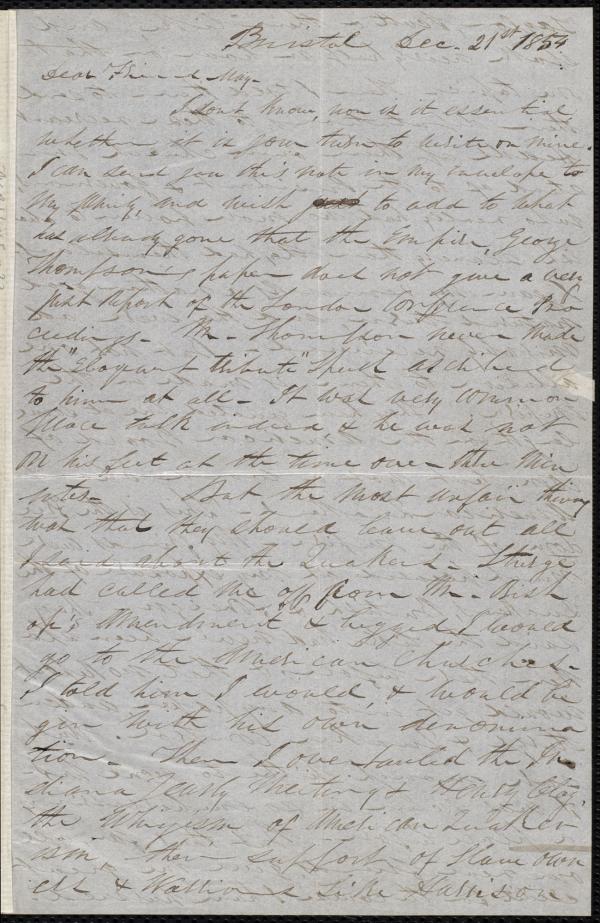 Bristol Dec. 21st 1854
Dear Friend May-
I dont know, nor is it essential
whether it is your turn to write or mine.
I can send you this note in my envelope to
my family, and wish to add to what
has already gone that the Empire, George
Thompson's paper does not give a very
just report of the London Conference Pro
ceedings- Mr. Thompson never made
the "Eloquent tribute" speech ascribed
to him at all- It was very common
place talk indeed & he was not
on his feet at the time over three min
utes- But the most unfair thing
was that they should leave out all
I said about the Quakers- Sturge
had called me off from Mr. Bish
op's Amendment & begged I would
go to the American Churches-
I told him I would, & would be
gin with his own denomina
tion- Then I overhauled the In
diana Yearly Meeting & Henry Clay,
the Whigism of American Quaker
ism, their support of Slave own
ers & Warriors like Harrison